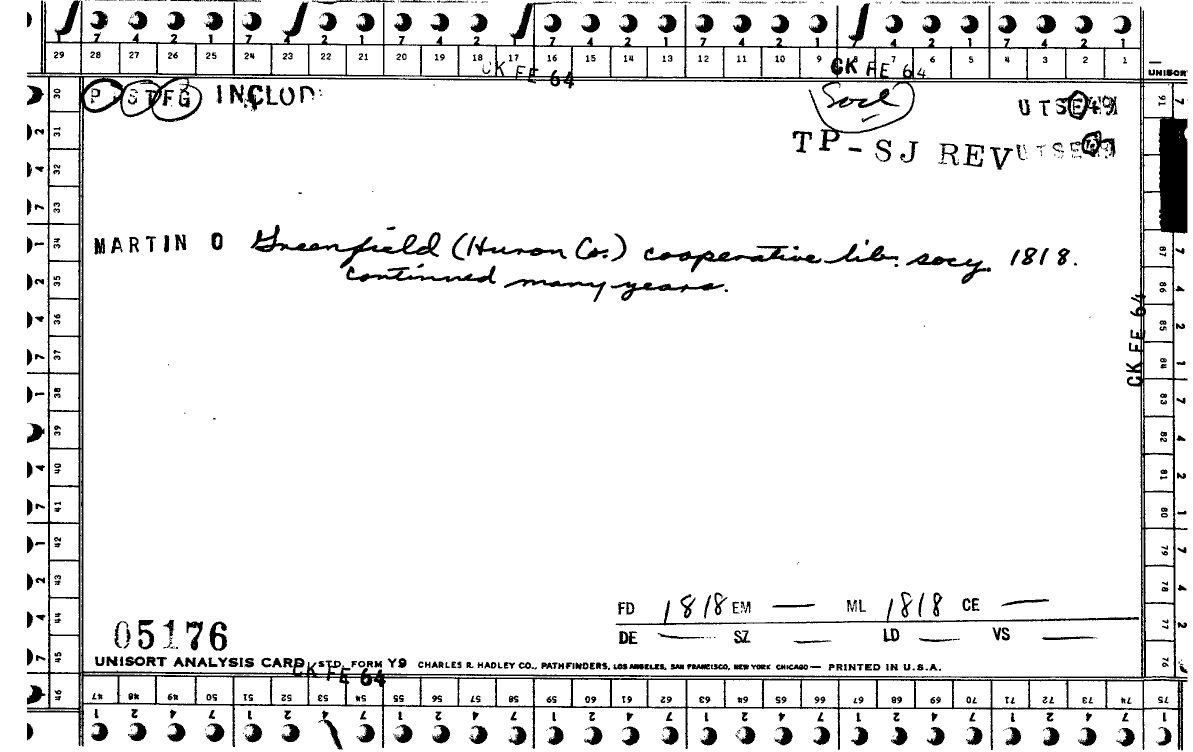 7 4 2 1 7 4 2 1 7 4 2 1 7 4 2 1 7 4 2 1 7 4 2 1 7 4 2 1
29 28 27 26 25 24 23 22 21 20 19 18 17 16 15 14 13 12 11 10 9 8 7 6 5 4 3 2 1
CK FE 64 CK FE 64
UNISORT
P. ST FG INCLOD Socl UTSE49
TP-SJ REV UTSE
MARTIN O Greenfield (Huron Co.) cooperative lib. socy. 1818.
continued many years.
CK FE 64
FD 1818 EM — ML 1818 CE —
DE — SZ — LD — VS
05176
UNISORT ANALYSIS CARD, STD. FORM Y9 CHARLES R. HADLEY CO., PATHFINDERS, LOS ANGELES, SAN FRANCISCO, NEW YORK CHICAGO — PRINTED IN U.S.A.
CK FE 64
30 31 32 33 34 35 36 37 38 39 40 41 42 43 44 45 46
47 48 49 50 51 52 53 54 55 56 57 58 59 60 61 62 63 64 65 66 67 68 69 70 71 72 73 74 75
1 2 4 7 1 2 4 7 1 2 4 7 1 2 4 7 1 2 4 7 1 2 4 7 1 2 4 7 1
91 87 86 85 84 83 82 81 80 79 78 77 76